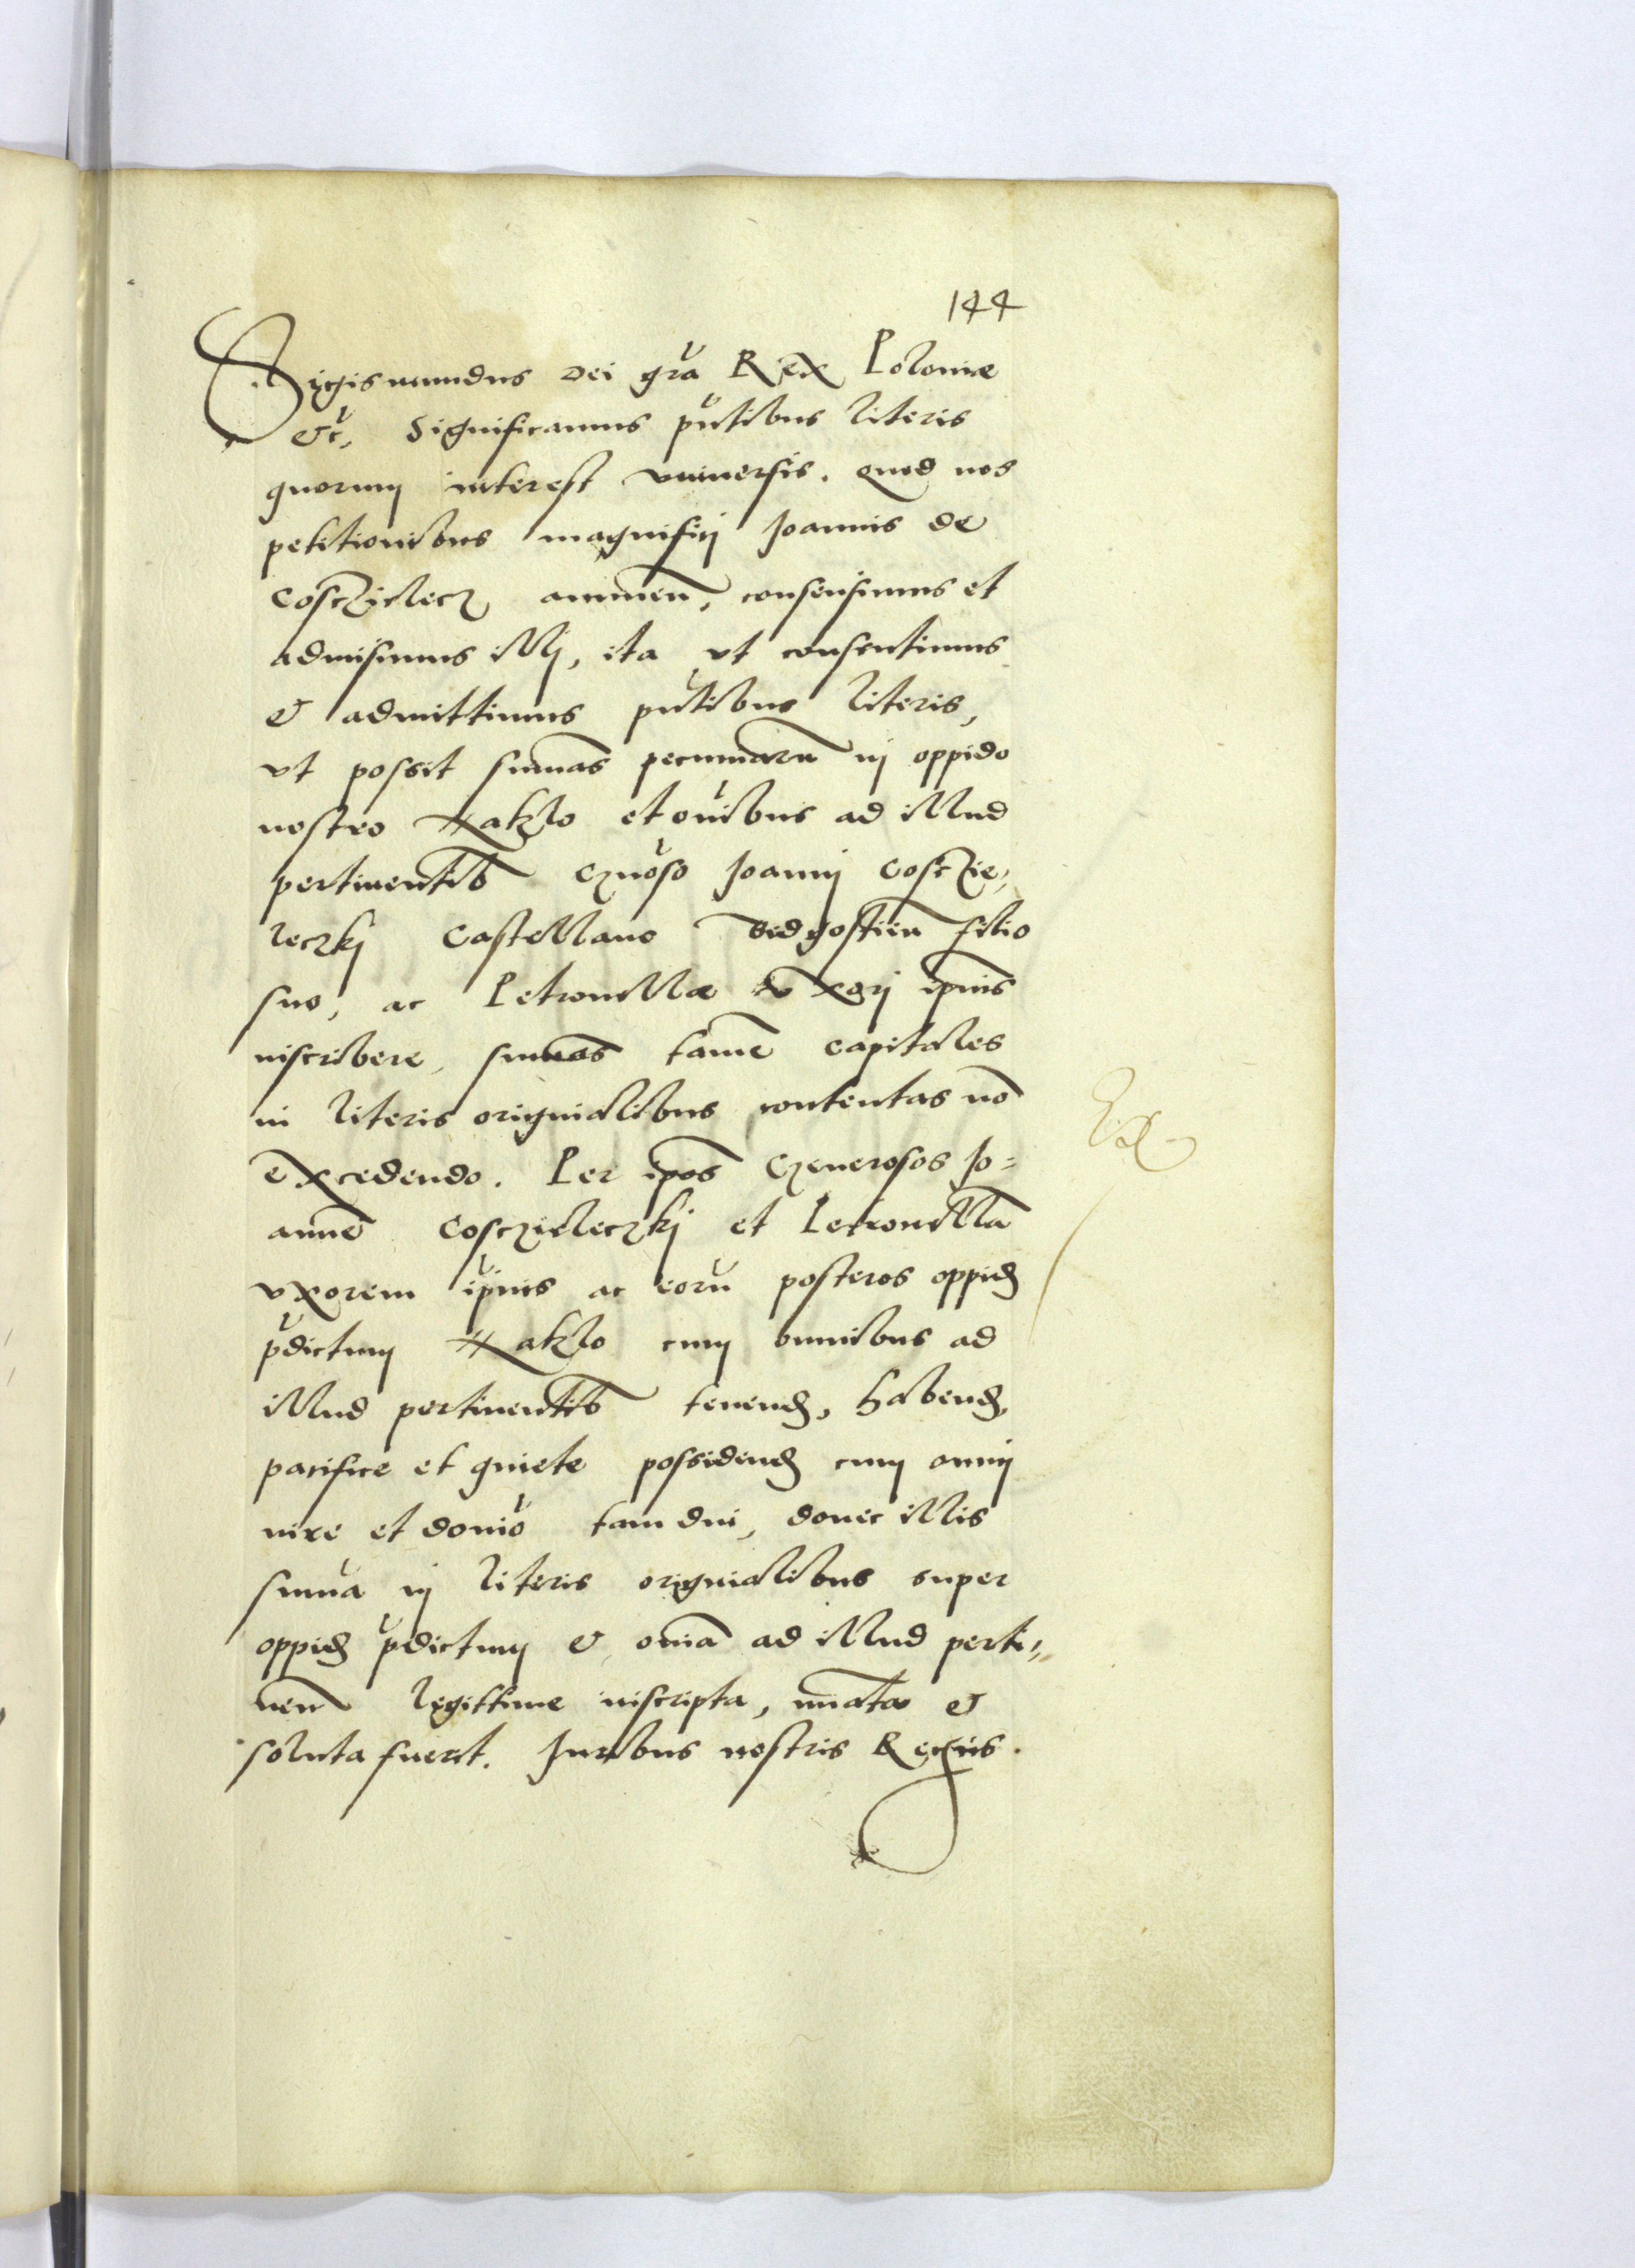 144
Sigismundus Dei gra͂ Rex Poloniæ
etc͂, Significamus pn͂tibus literis
quorum interest vniuersis. Quod nos
petitionibus magnifici Joannis de
Cosczielecz annuen͂, consensimus et
admisimus illi, ita vt consentimus
& admittimus pn͂tibus literis,
vt possit sum͂as pecuniaru͂ in oppido
nostro Naklo et om͂ibus ad illud
pertinentib͂ Gn͂oso Joanni Cosczie=
leczki Castellano Bidgostien͂ filio
suo, ac Petronillæ Vxori ip͂ius
inscribere, sum͂as tame͂ capitales
in literis originalibus contentas no͂
excedendo. Per ip͂os Generosos Jo=
anne͂ Cosczieleczki et Petronilla͂
vxorem ip͂ius ac eoru͂ posteros oppid͂
p͂dictum Naklo cum omnibus ad
illud pertinentib͂ tenend͂, habend͂,
pacifice et quiete possidend͂ cum omni
iure et domio͂ tam diu, donec illis
sum͂a in literis originalibus super
oppid͂ p͂dictum & om͂ia ad illud perti=
nen͂ legittime inscripta, nu͂ata &
soluta fuerit. Juribus nostris Regiis.